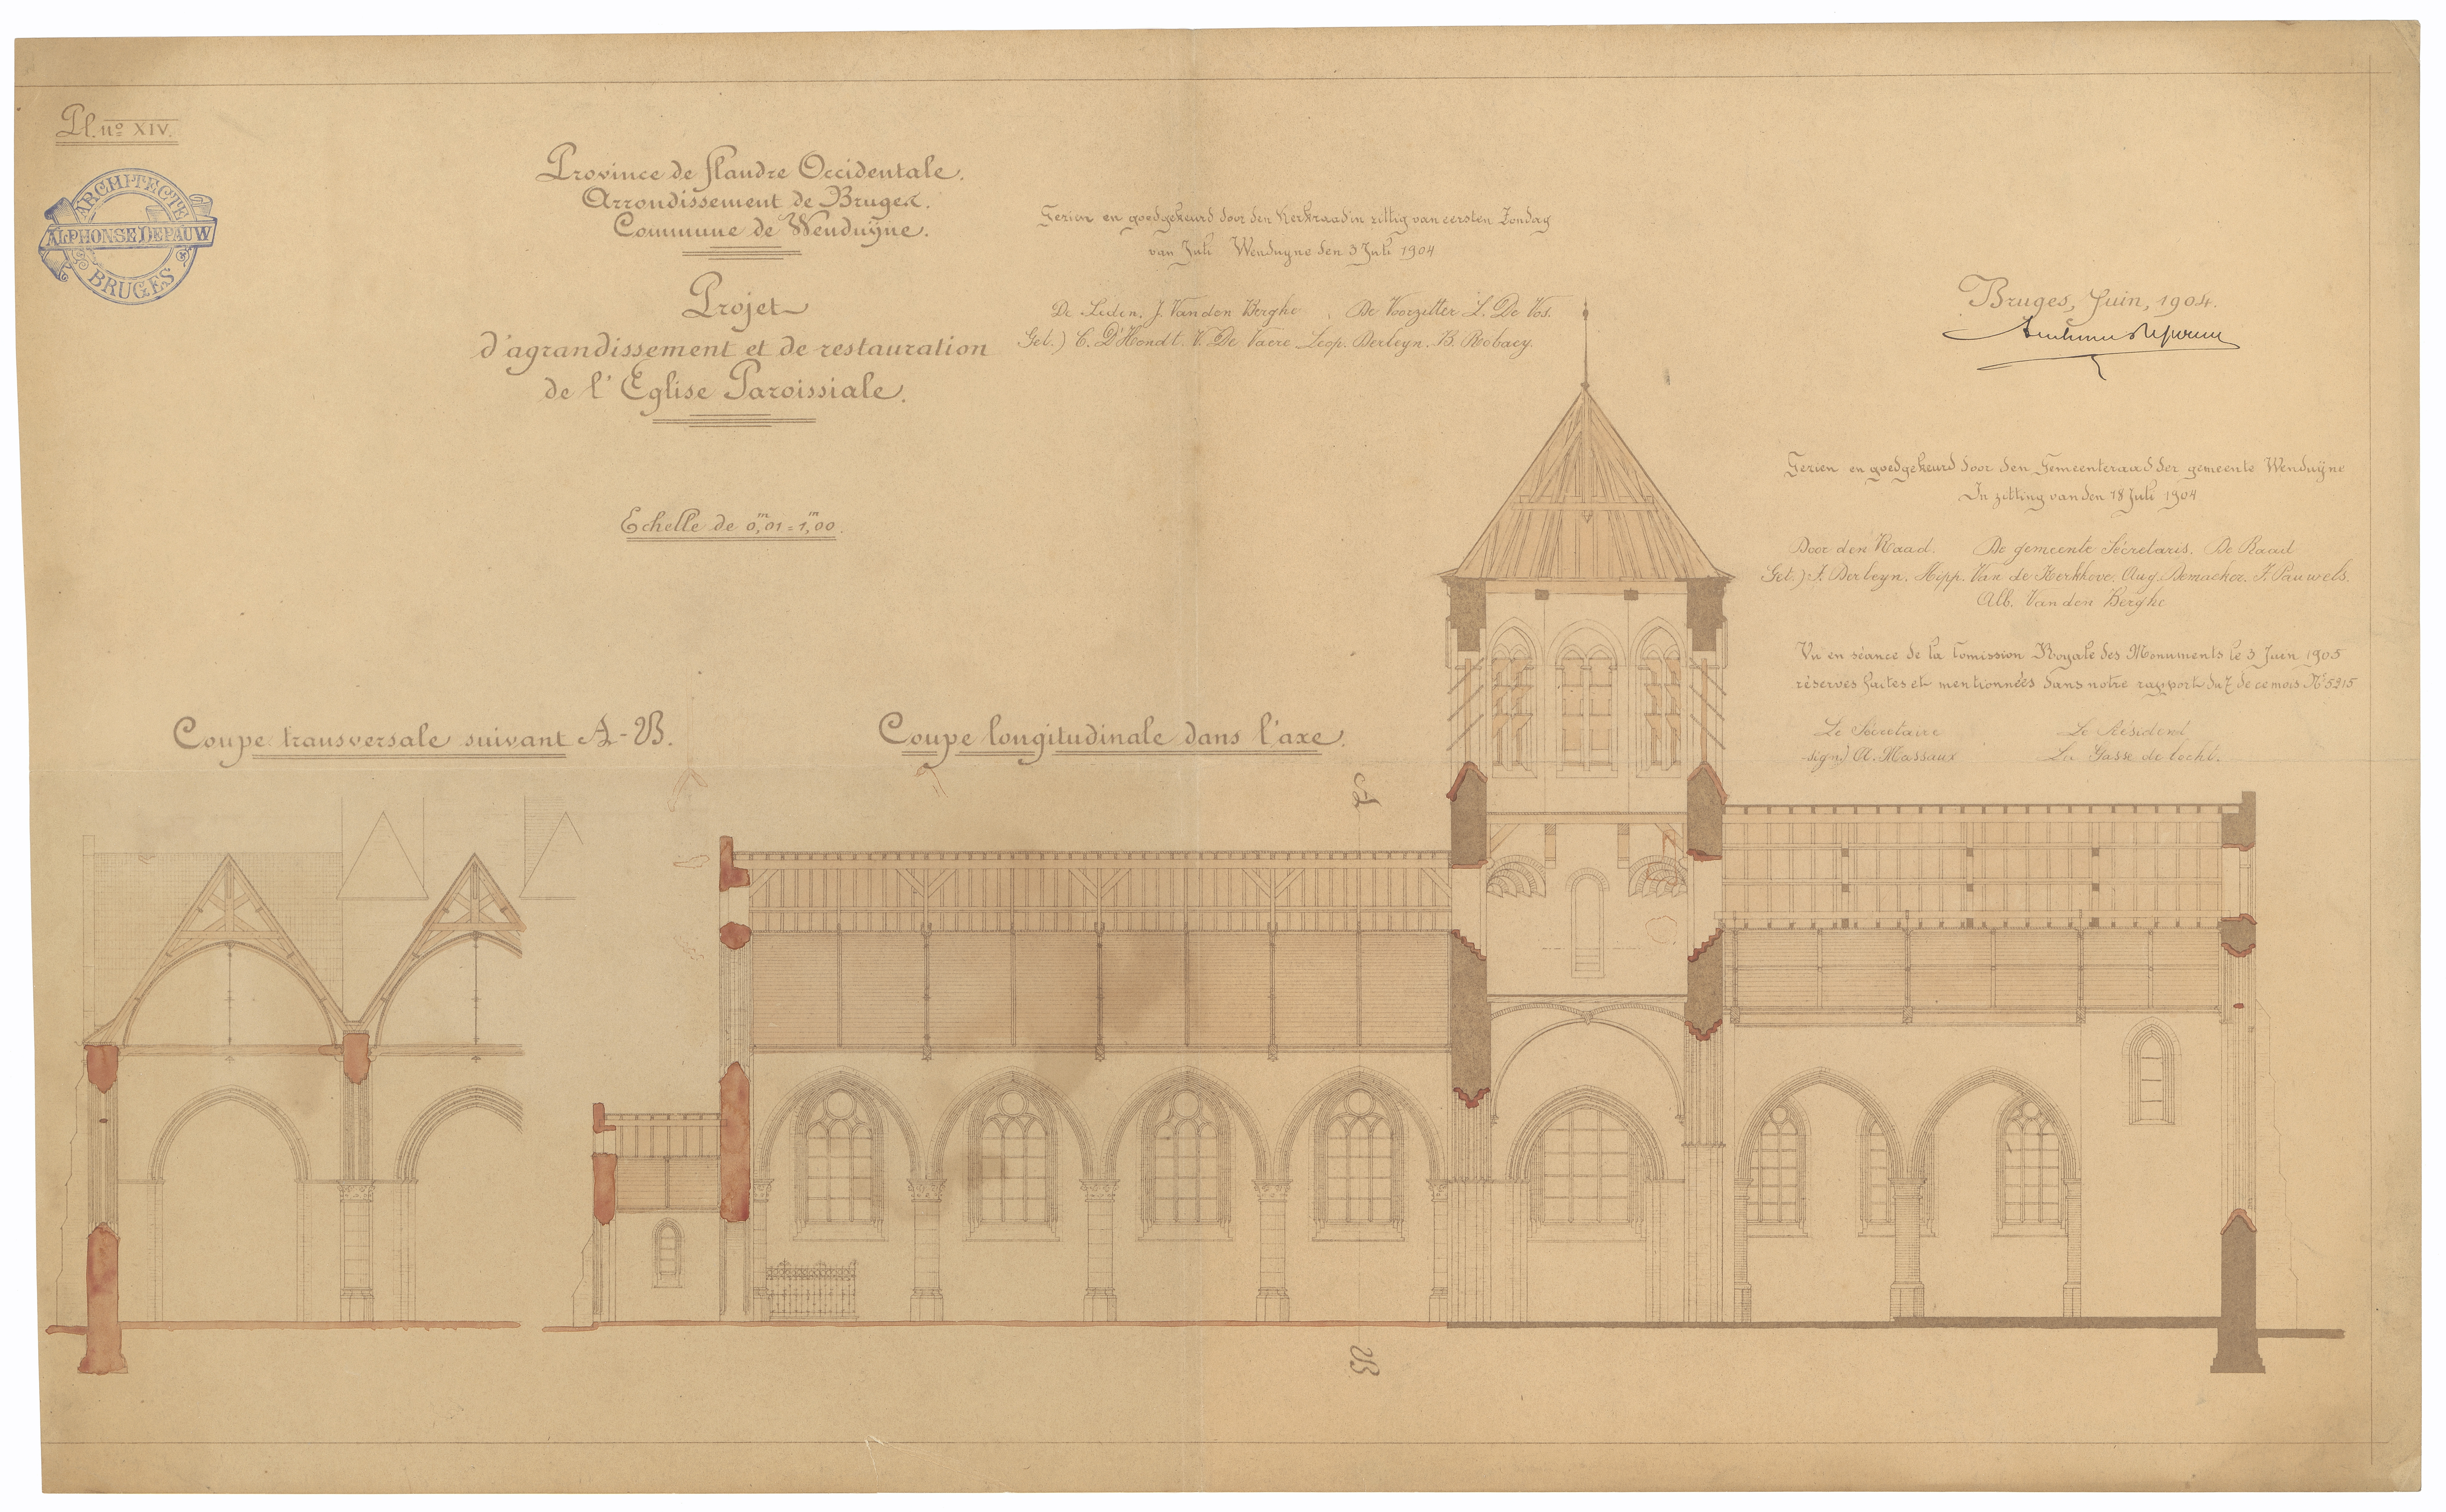 Pl. nº XIV.
ARCHITECTE
ALPHONSE DEPAUW
BRUGES
Province de Flandre Occidentale.
Arrondissement de Bruges.
Commune de Wenduÿne.
Projet
d'agrandissement et de restauration
de l'Eglise Paroissiale.
Echelle de 0,01 = 1,00.
m m
Gezien en goedgekeurd door den Kerkraad in zittig van eersten Zondag
van Juli Wenduyne den 3 Juli 1904
De Leden. J. Van den Berghe De Voorzitter L. De Vos.
Get.) C. D'Hondt. V. De Vaere Leop. Derleyn. B. Robaey.
Bruges, Juin, 1904.
Gezien en goedgekeurd door den Gemeenteraad der gemeente Wenduÿne
In zitting van den 18 Juli 1904
Door den Raad. De gemeente Sécretaris. De Raad
Get.) J. Derleyn. Hipp. Van de Kerkhove. Aug. Demaeker. F. Pauwels.
Alb. Van den Berghe
Vu en séance de la Comission Royale des Monuments le 3 Juin 1905
réserves faites et mentionnées dans notre rapport du 7 de ce mois Nº 5215
Le Sécretaire Le Président
signé) A. Massaux
Coupe transversale suivant A-B.
Coupe longitudinale dans l'axe.
A
B